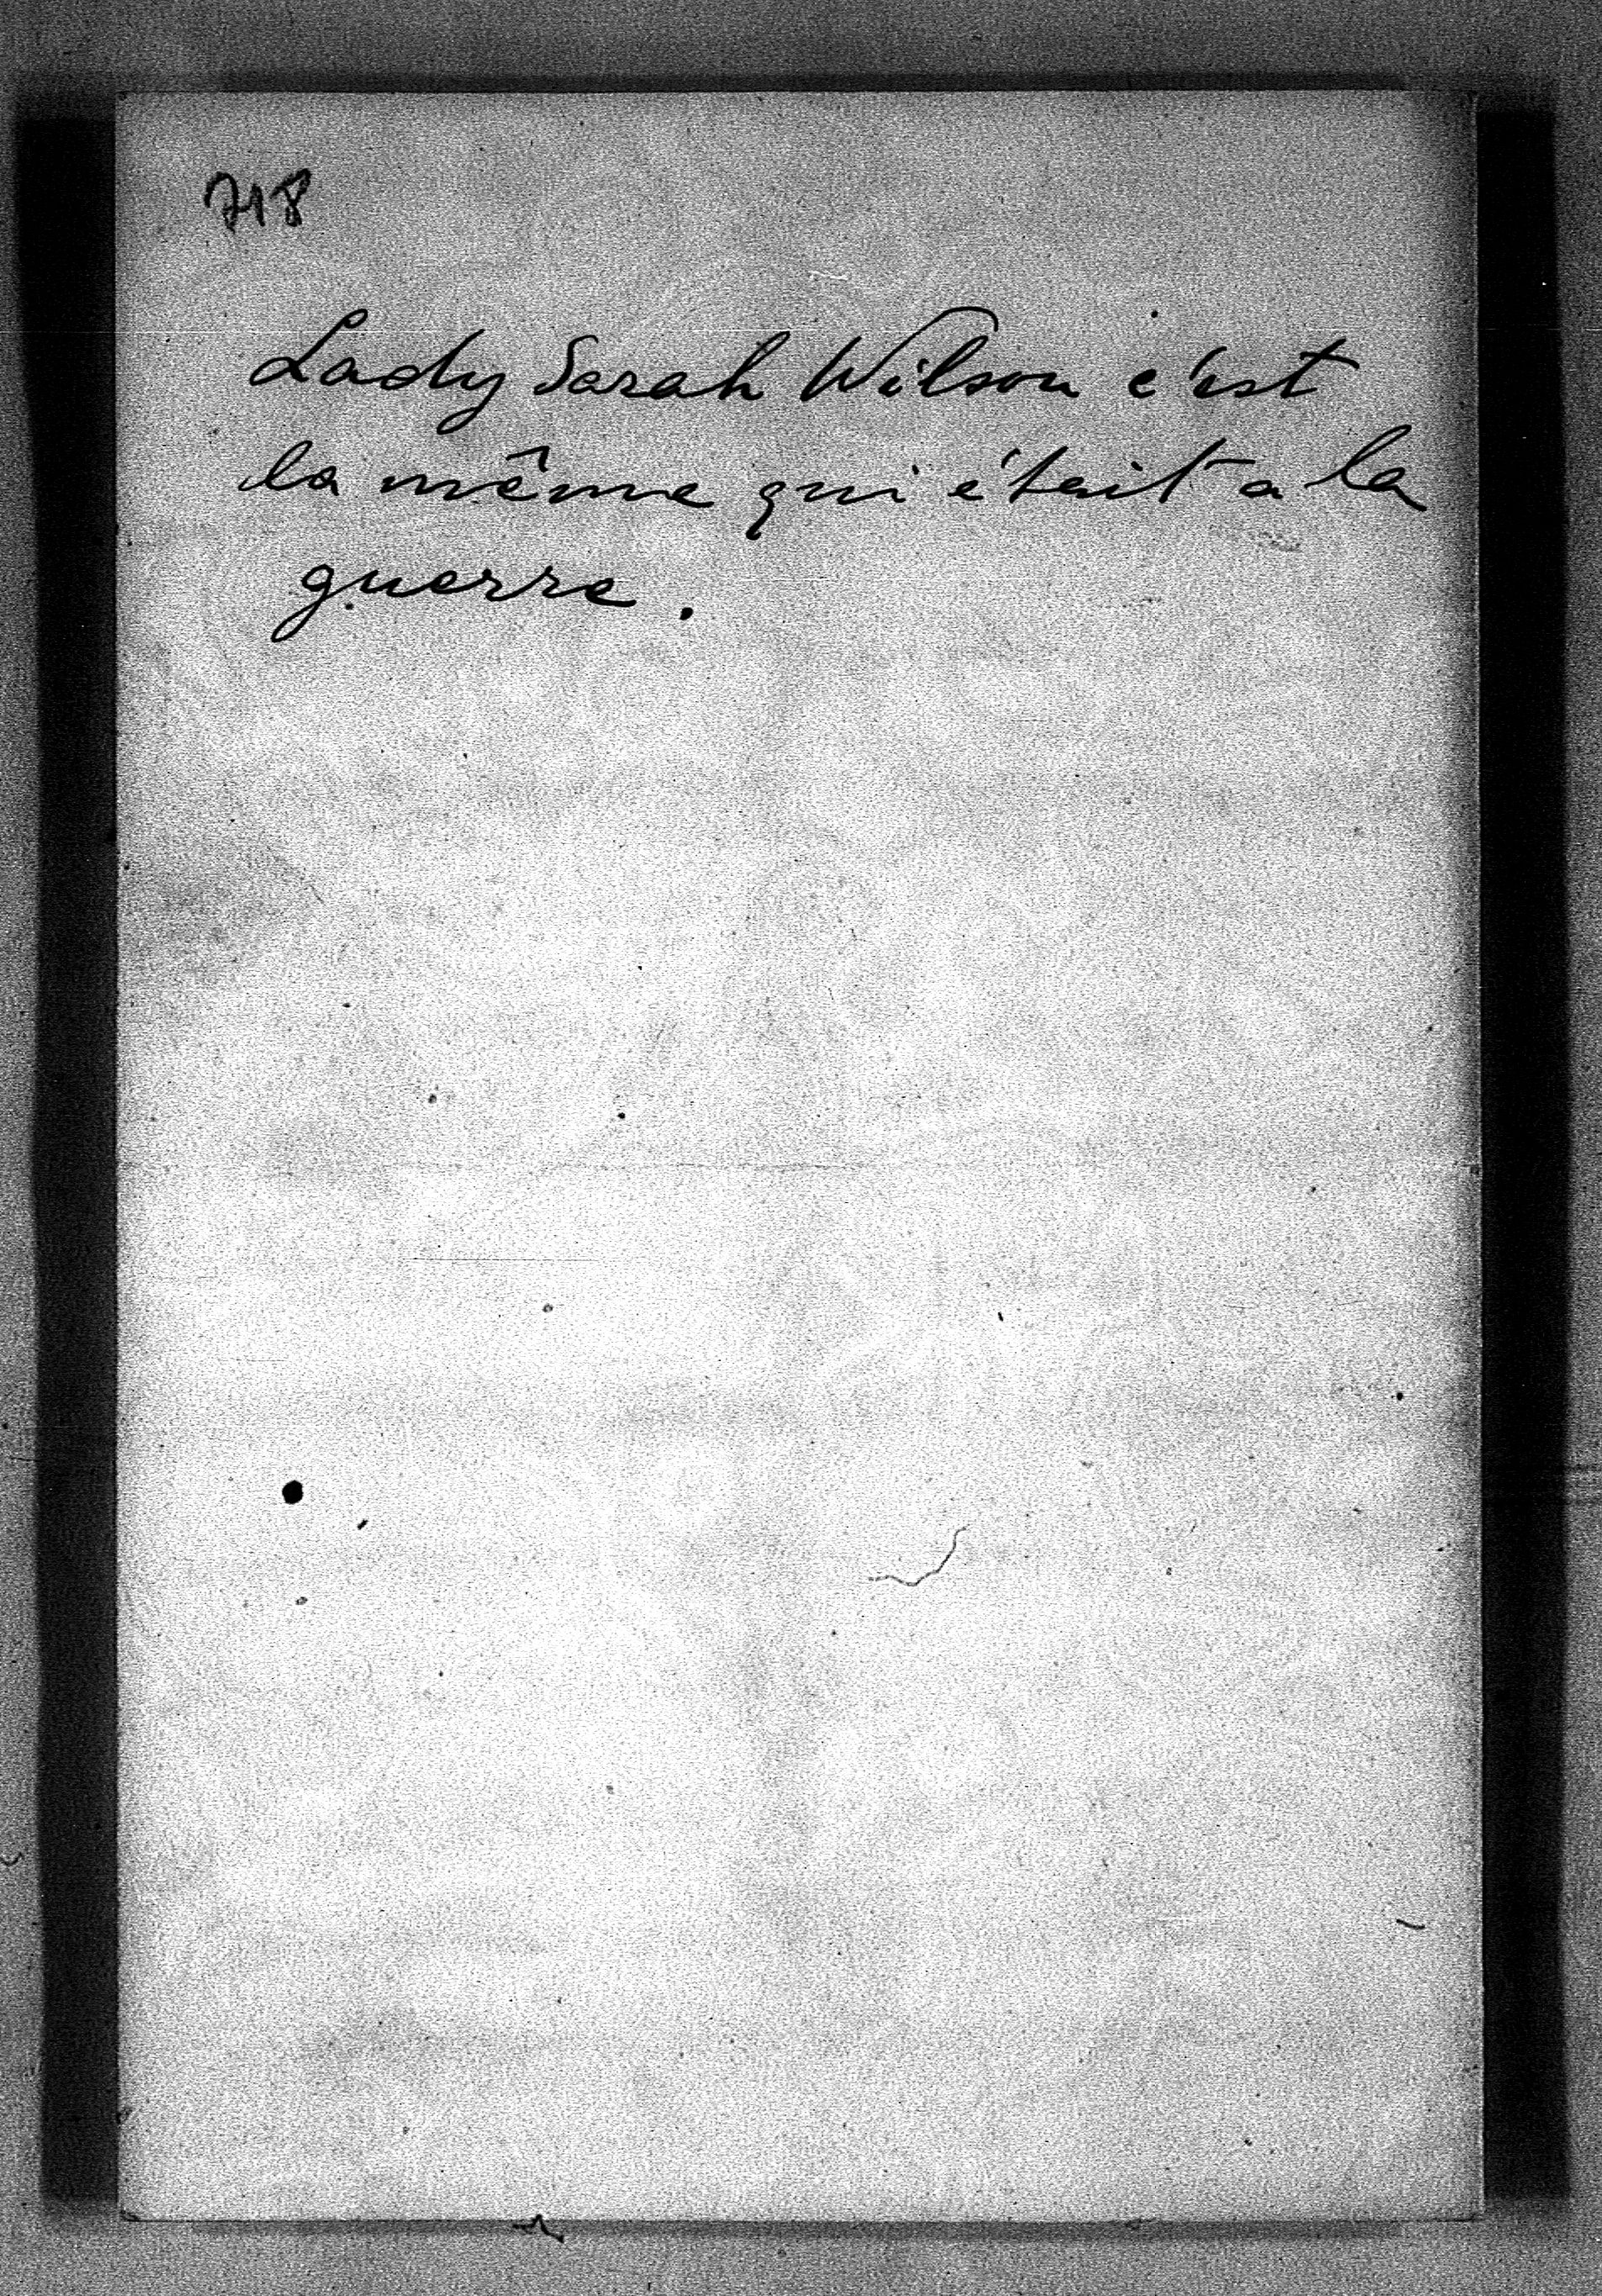 718
Lady Sarah Wilson c'est
la même qui était a la
guerre.